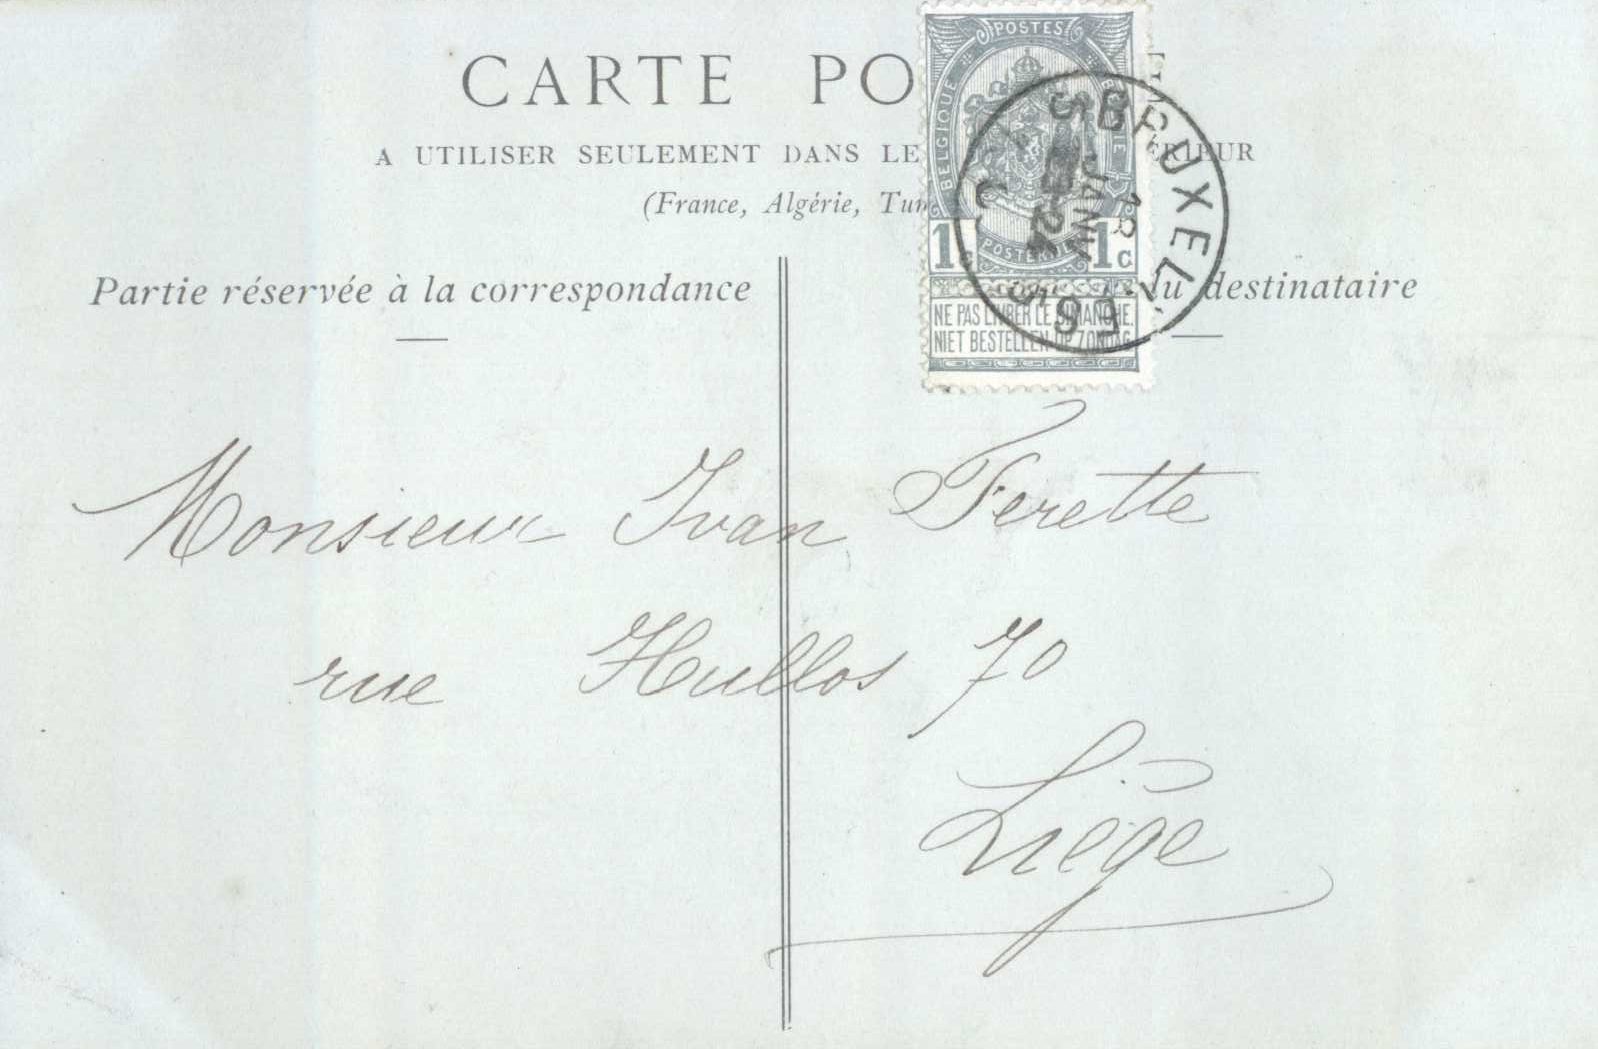 CARTE PO
A UTILISER SEULEMENT DANS LE ÉRIEUR
(France, Algérie, Tun
POSTES
BELGIQUE
1c 1c
POSTERIJEN
NE PAS LIVRER LE DIMANCHE.
NIET BESTELLEN OP ZONDAG
BRUXELL
18
JANV
Partie réservée à la correspondance
du destinataire
Monsieur Ivan Ferette
rue Hullos 70
Liège